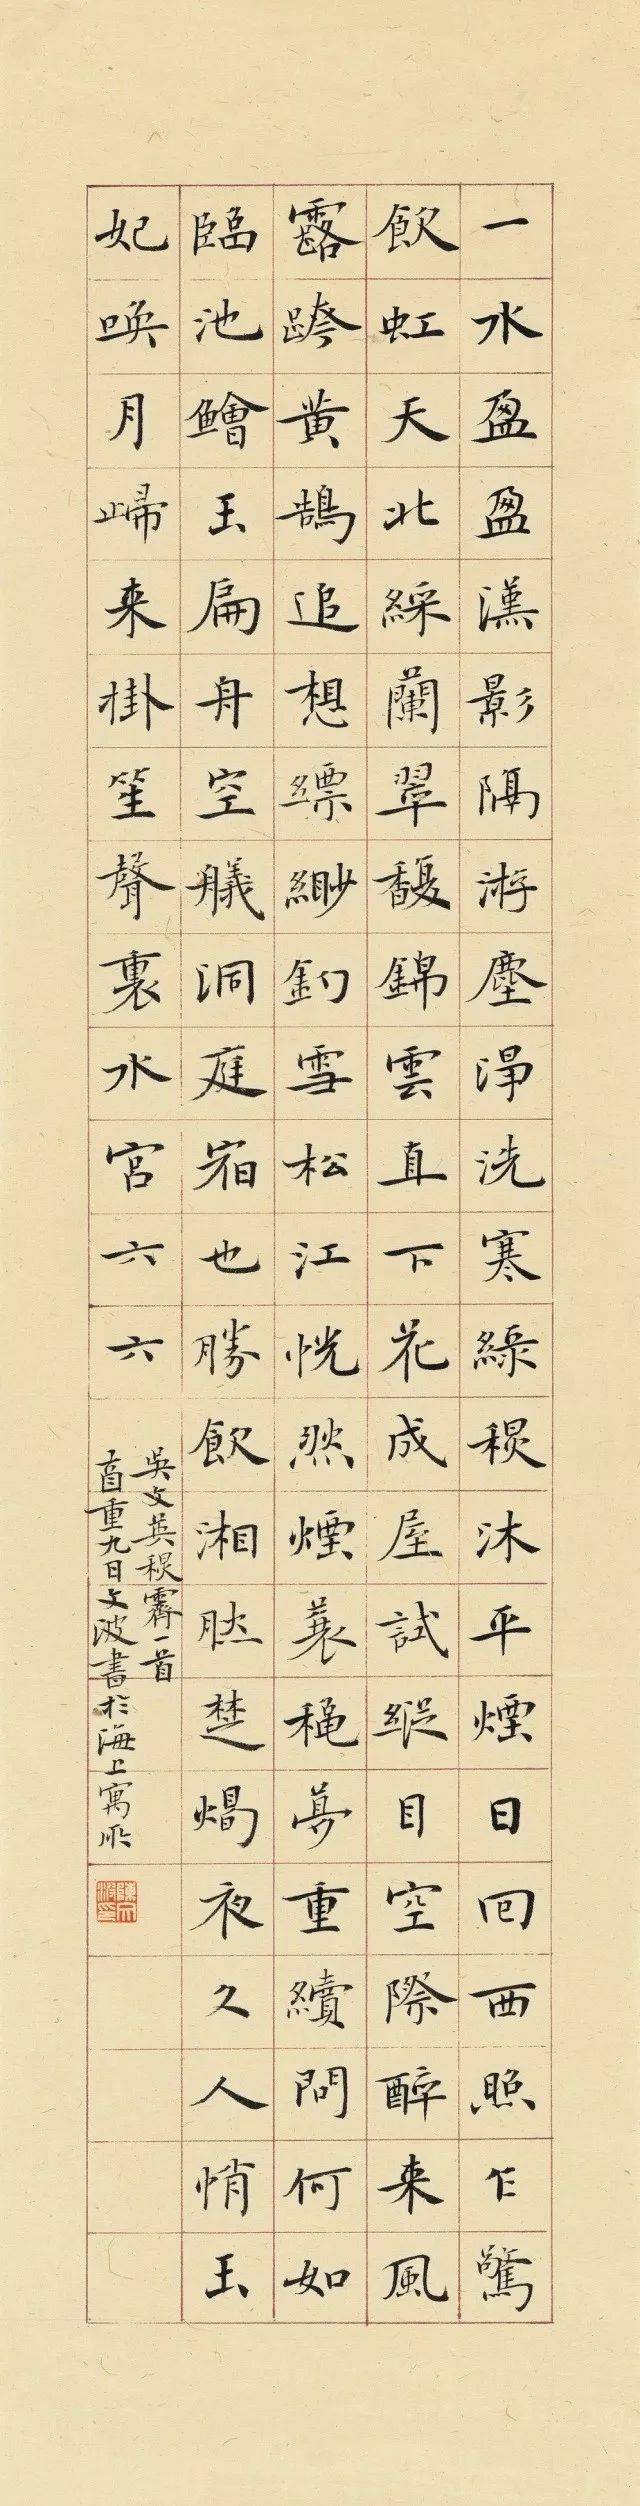 一水盈盈漢影隔游塵淨洗寒綠秋沐平煙日回西照乍驚
飲虹天北綵蘭翠馥錦雲直下花成屋試縱目空際醉来風
露跨黄鵠追想縹緲釣雪松江恍然煙蓑穐夢重續問何如
臨池鱠玉扁舟空艤洞庭宿也勝飲湘肰楚燭夜久人悄玉
妃喚月歸来掛笙聲裏水宮六六
吳文英秋霽一首
重九日文波書於海上寓所